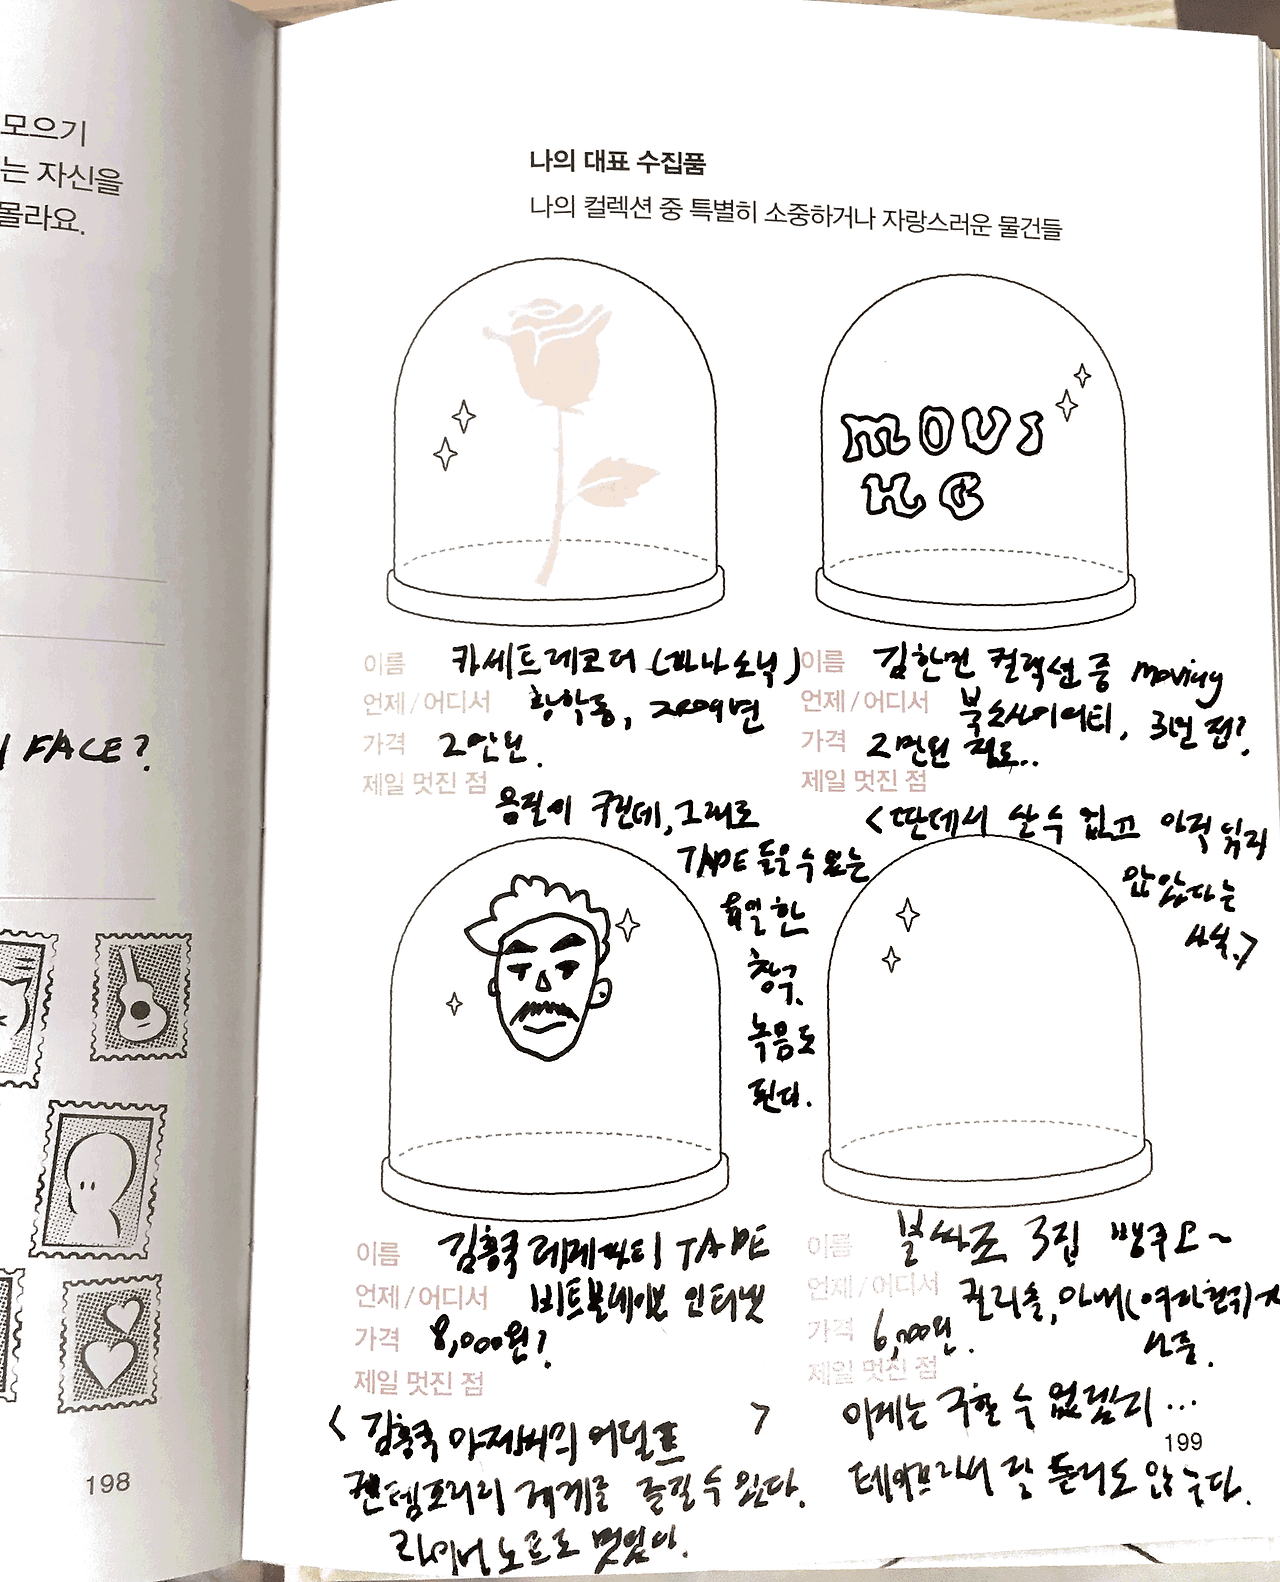 모으기
는 자신을
몰라요.
FACE?
198
나의 대표 수집품
나의 컬렉션 중 특별히 소중하거나 자랑스러운 물건들
이름 카세트레코더 (파나소닉)
언제 / 어디서 황학동, 2009년
가격 2만원.
제일 멋진 점
음질이 구린데, 그래도
TAPE 들을 수 있는
유일한
창구.
녹음도
된다.
MOVI
NG
이름 컬렉션 중 moving
언제 / 어디서 3년 전?
가격 2만원 정도..
제일 멋진 점
<딴데서 살 수 없고 아직 뜯지
않았다는
사실.>
이름 김흥국 TAPE
언제 / 어디서 인터넷
가격 8,000원?
제일 멋진 점
< 김흥국 아저씨의 어덜트 >
컨템포러리 세계를 즐길 수 있다.
라이너 노트도 멋있다.
이름 불싸조 3집 뱅쿠오~
언제 / 어디서
가격
제일 멋진 점
이제는 구할 수 없겠지...
테이프라서 잘 듣지도 않는다.
199